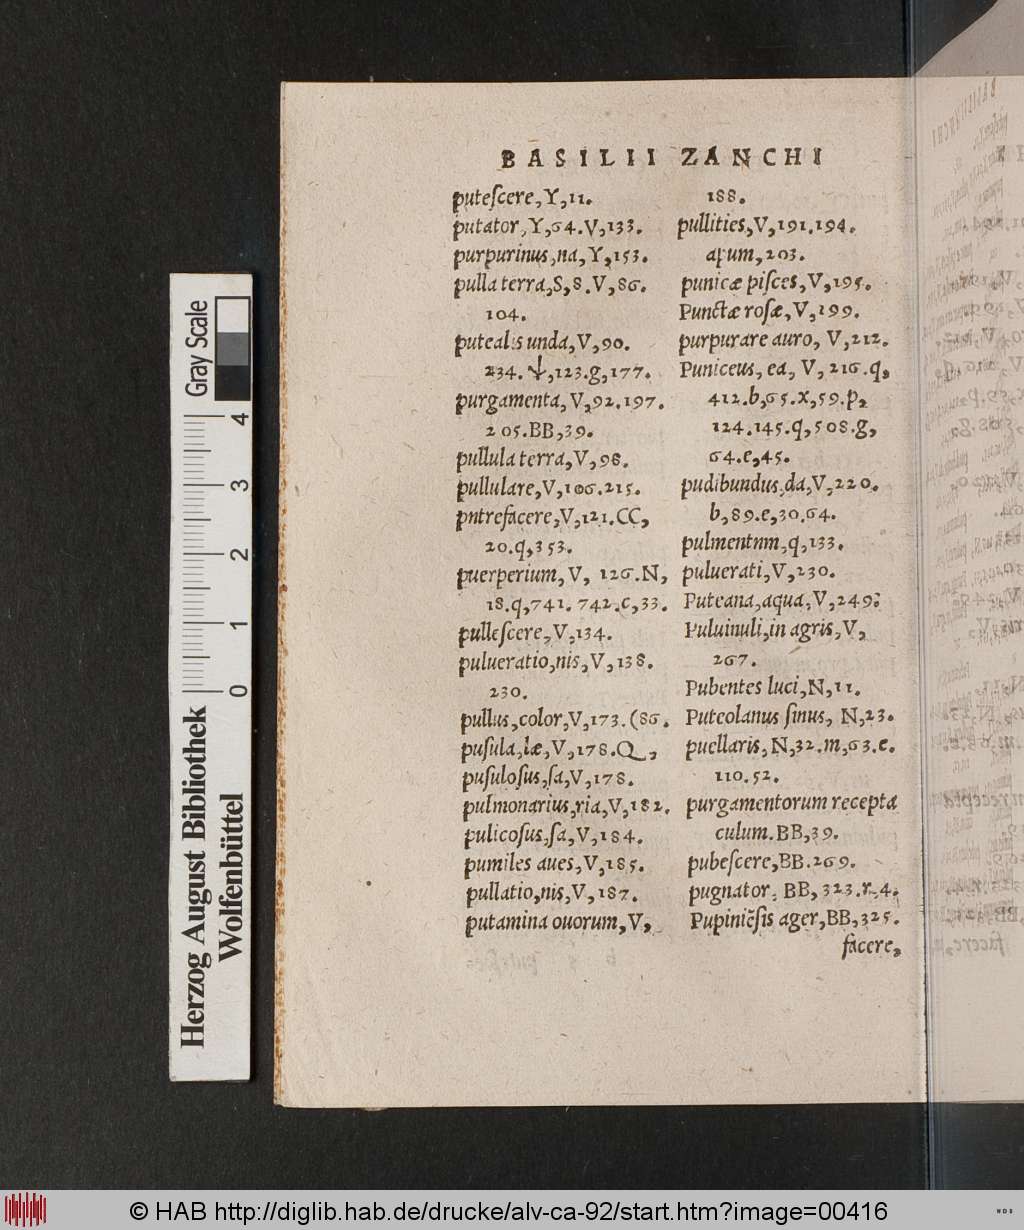 BASILII ZANCHI
puteſcere, Y, 11.
putator, Y, 64. V, 133.
purpurinus, na, Y, 153.
pulla terra, S, 8. V, 86.
104.
putealis unda, V, 90.
234. Ψ, 123. g, 177.
purgamenta, V, 92. 197.
205. BB, 39.
pullula terra, V, 98.
pullulare, V, 106. 215.
pntrefacere, V, 121. CC,
20. q, 353.
puerperium, V, 126. N,
18. q, 741. 742. c, 33.
pulleſcere, V, 134.
pulueratio, nis, V, 138.
230.
pullus, color, V, 173. (86.
puſula, læ, V, 178. Q,
puſuloſus, ſa, V, 178.
pulmonarius, ria, V, 182.
pulicoſus, ſa, V, 184.
pumiles aues, V, 185.
pullatio, nis, V, 187.
putamina ouorum, V,
188.
pullities, V, 191. 194.
apum, 203.
punicæ piſces, V, 195.
Punctæ roſæ, V, 199.
purpurare auro, V, 212.
Puniceus, ea, V, 216. q,
412. b, 65. x, 59. p,
124. 145. q, 508. g,
64. e, 45.
pudibundus, da, V, 220.
b, 89. e, 30. 64.
pulmentnm, q, 133.
puluerati, V, 230.
Puteana, aqua, V, 249.
Puluinuli, in agris, V,
267.
Pubentes luci, N, 11.
Puteolanus ſinus, N, 23.
puellaris, N, 32. m, 63. e.
110. 52.
purgamentorum recepta
culum. BB, 39.
pubeſcere, BB. 269.
pugnator, BB, 323. r. 4.
Pupiniẽſis ager, BB, 325.
facere,
Gray Scale
4
3
2
1
0
Herzog August Bibliothek
Wolfenbüttel
© HAB http://diglib.hab.de/drucke/alv-ca-92/start.htm?image=00416
WDB